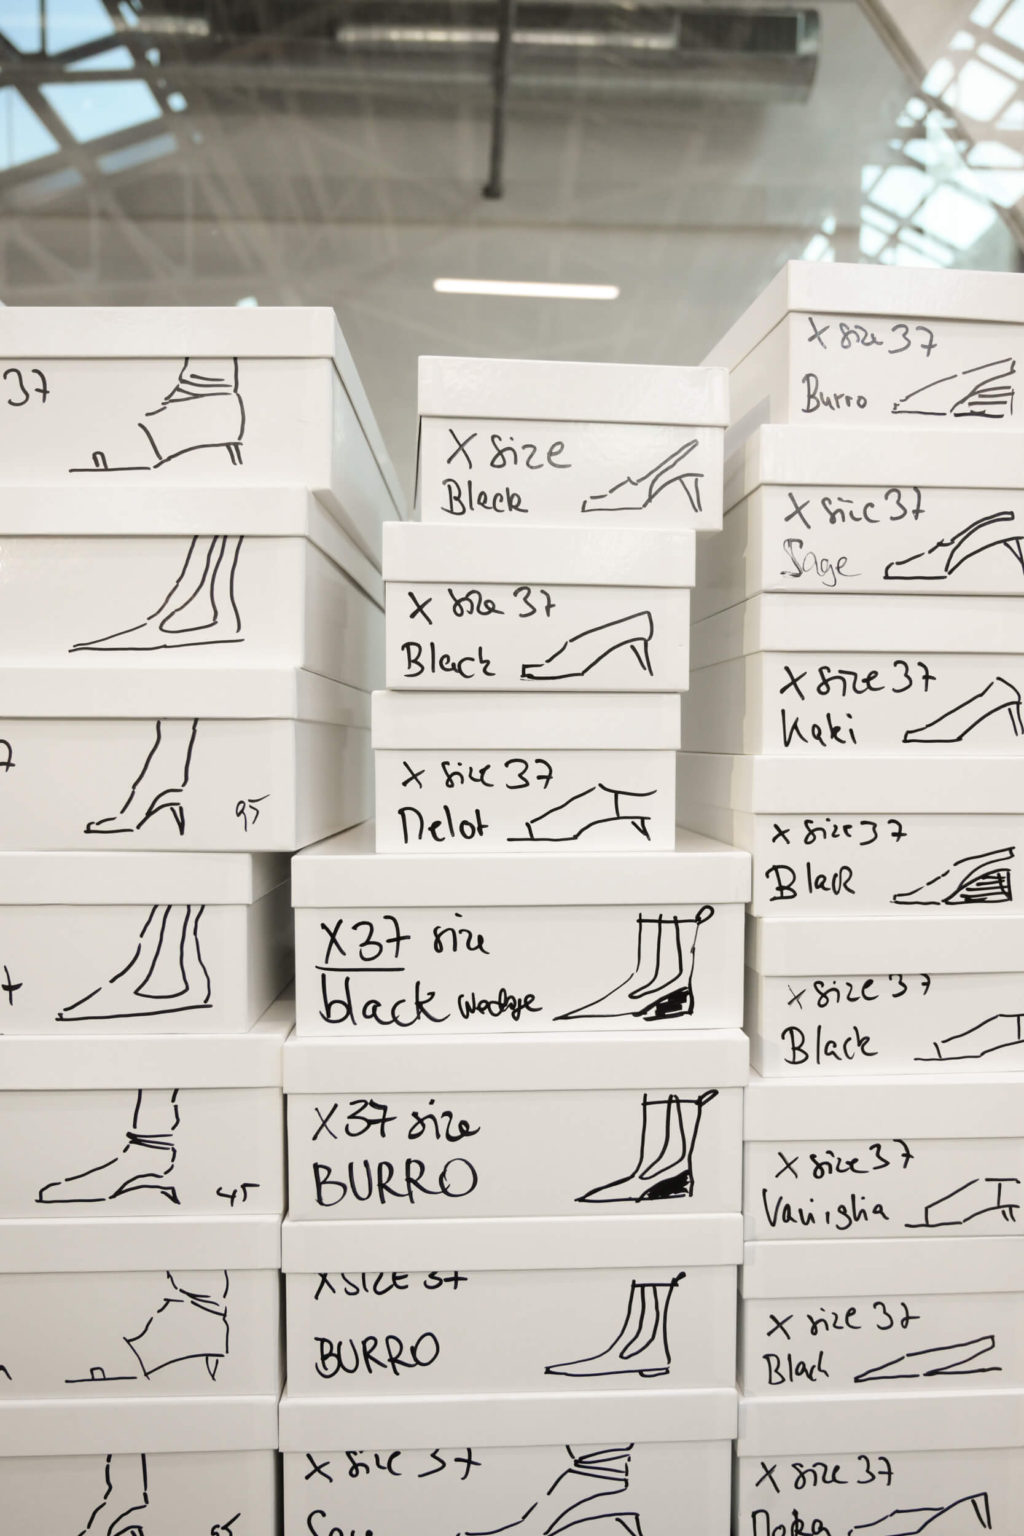 37
95
45
X size
Black
X size 37
Black
X size 37
X 37 size
black wedge
X 37 size
BURRO
X SIZE 37
BURRO
X size 37
X size 37
Burro
X size 37
Sage
X size 37
Kaki
X size 37
Black
X size 37
Black
X size 37
Vaniglia
X size 37
Black
X size 37